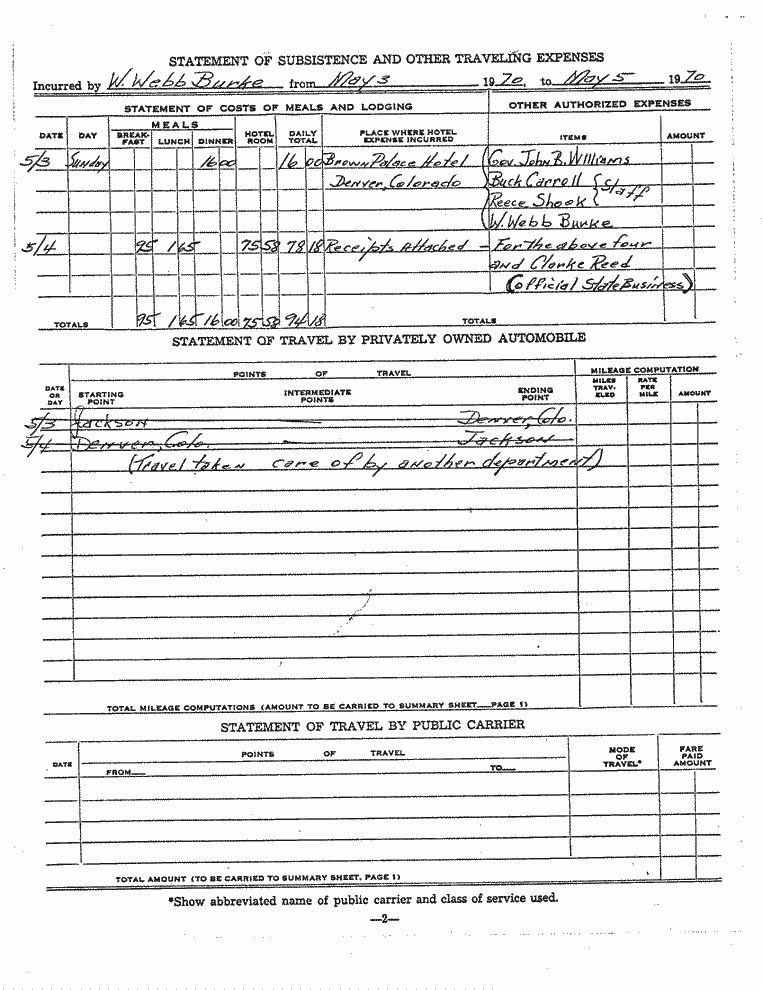 STATEMENT OF SUBSISTENCE AND OTHER TRAVELING EXPENSES
Incurred by W. Webb Burke from May 3 1970, to May 5 1970
STATEMENT OF COSTS OF MEALS AND LODGING OTHER AUTHORIZED EXPENSES
DATE DAY MEALS BREAK-FAST LUNCH DINNER HOTEL ROOM DAILY TOTAL PLACE WHERE HOTEL EXPENSE INCURRED ITEMS AMOUNT
5/3 Sunday 16 00 16 00 Brown Palace Hotel Gov. John B. Williams
Denver, Colorado Buck Carroll } Staff
Reece Shook
W. Webb Burke
5/4 95 1 65 75 58 78 18 Receipts Attached - For the above four
and Clarke Reed
(Official State Business)
TOTALS 95 1 65 16 00 75 58 94 18 TOTALS
STATEMENT OF TRAVEL BY PRIVATELY OWNED AUTOMOBILE
POINTS OF TRAVEL MILEAGE COMPUTATION
DATE OR DAY STARTING POINT INTERMEDIATE POINTS ENDING POINT MILES TRAV-ELED RATE PER MILE AMOUNT
5/3 Jackson Denver, Colo.
5/4 Denver, Colo. Jackson
(Travel taken care of by another department)
TOTAL MILEAGE COMPUTATIONS (AMOUNT TO BE CARRIED TO SUMMARY SHEET—PAGE 1)
STATEMENT OF TRAVEL BY PUBLIC CARRIER
DATE POINTS OF TRAVEL MODE OF TRAVEL* FARE PAID AMOUNT
FROM— TO—
TOTAL AMOUNT (TO BE CARRIED TO SUMMARY SHEET, PAGE 1)
*Show abbreviated name of public carrier and class of service used.
—2—